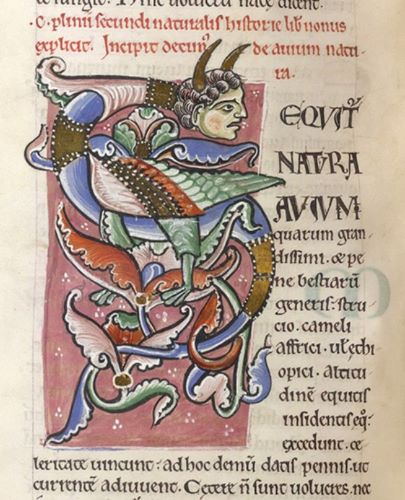 C. plinii secundi naturalis historie lib nonus
explicit. Incipit decim' de auium natu
ra.
SEQUIT̃
NATURA
AVIUM
quarum gran
dissimi. & pe
ne bestiarũ
generis: stru
cio. cameli
affrici. ul' ethi
opici. altitu
dinẽ equitis
insidentis eq̃.
excedunt. ce
leritate uincunt: ad hoc demũ datis pennis. ut
currentẽ adiuvent. Cetere ñ sunt uolucres.